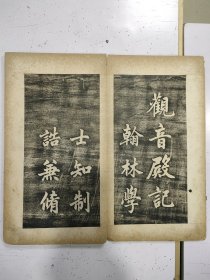 觀音殿記
翰林學
士知制
誥兼脩